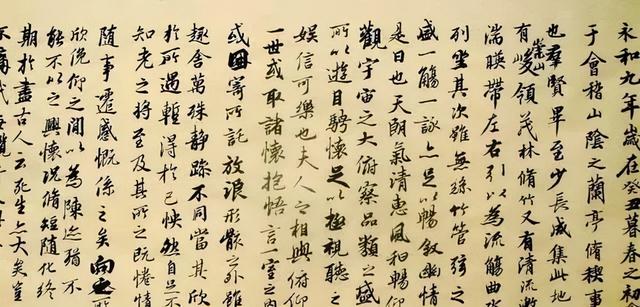 永和九年歲在癸丑暮春之初
于會稽山陰之蘭亭脩稧事
也羣賢畢至少長咸集此地
有崇山峻領茂林脩竹又有清流激
湍暎帶左右引以為流觴曲水
列坐其次雖無絲竹管弦之
盛一觴一詠亦足以暢敘幽情
是日也天朗氣清惠風和暢仰
觀宇宙之大俯察品類之盛
所以遊目騁懷足以極視聽之
娛信可樂也夫人之相與俯仰
一世或取諸懷抱悟言一室之內
或因寄所託放浪形骸之外雖
趣舍萬殊靜躁不同當其欣
於所遇蹔得於己怏然自足不
知老之將至及其所之既惓情
隨事遷感慨係之矣向之所
欣俛仰之閒以為陳迹猶不
能不以之興懷況脩短隨化終
期於盡古人云死生亦大矣豈